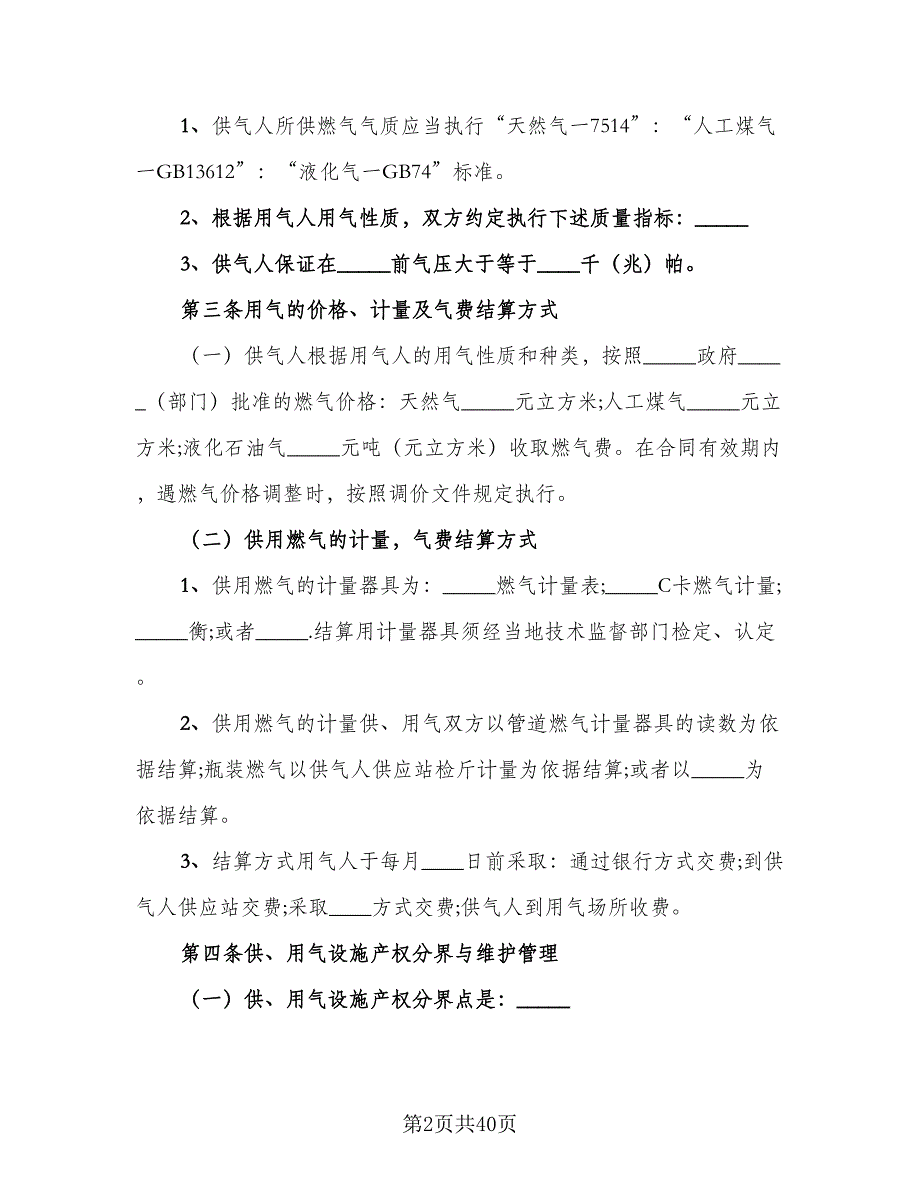 1、供气人所供燃气气质应当执行“天然气一7514”：“人工煤气
一GB13612”：“液化气一GB74”标准。
2、根据用气人用气性质，双方约定执行下述质量指标：_____
3、供气人保证在_____前气压大于等于____千（兆）帕。
第三条用气的价格、计量及气费结算方式
（一）供气人根据用气人的用气性质和种类，按照_____政府____
_（部门）批准的燃气价格：天然气_____元立方米;人工煤气_____元立
方米;液化石油气_____元吨（元立方米）收取燃气费。在合同有效期内
，遇燃气价格调整时，按照调价文件规定执行。
（二）供用燃气的计量，气费结算方式
1、供用燃气的计量器具为：_____燃气计量表;_____C卡燃气计量;
_____衡;或者_____.结算用计量器具须经当地技术监督部门检定、认定
。
2、供用燃气的计量供、用气双方以管道燃气计量器具的读数为依
据结算;瓶装燃气以供气人供应站检斤计量为依据结算;或者以_____为
依据结算。
3、结算方式用气人于每月____日前采取：通过银行方式交费;到供
气人供应站交费;采取____方式交费;供气人到用气场所收费。
第四条供、用气设施产权分界与维护管理
（一）供、用气设施产权分界点是：_____
第2页共40页